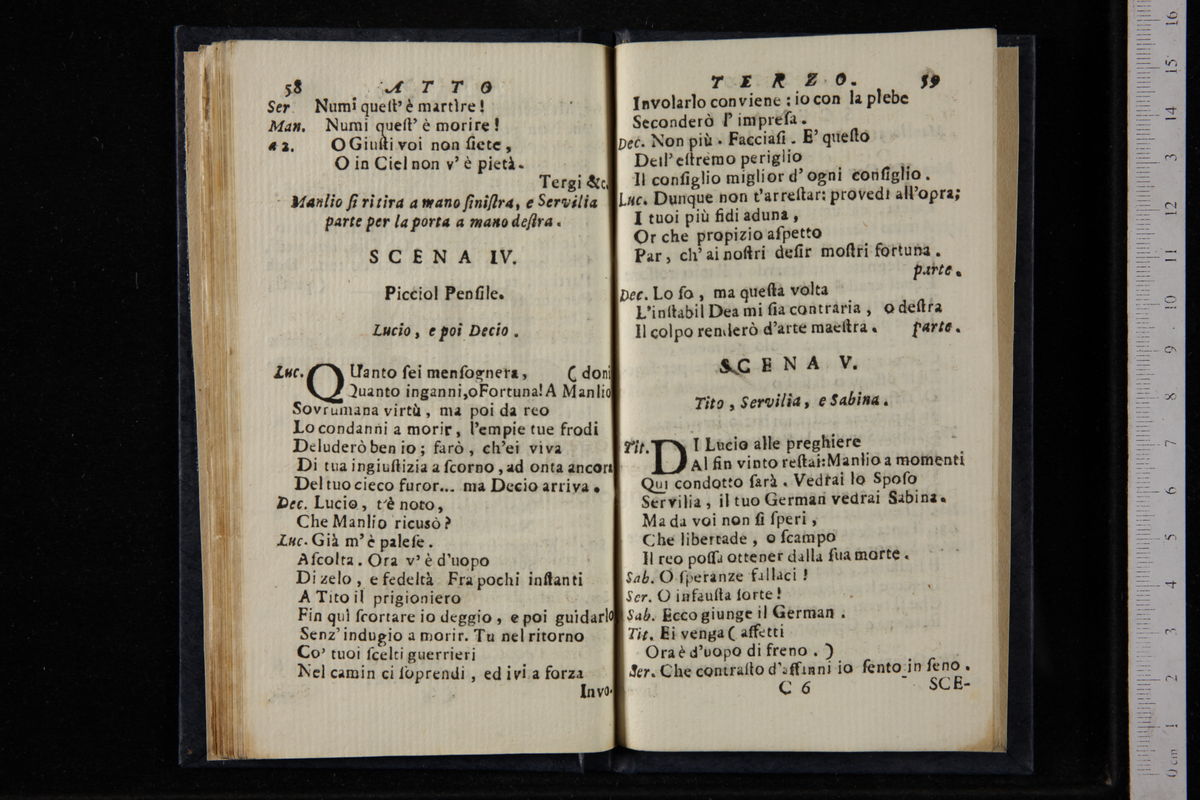 58 ATTO
Ser. Numi quest' è martìre!
Man. Numi quest' è morire!
a 2. O Giusti voi non siete,
O in Ciel non v' è pietà.
Tergi &c.
Manlio si ritira a mano sinistra, e Servilia
parte per la porta a mano destra.
SCENA IV.
Picciol Pensile.
Lucio, e poi Decio.
Luc. QUanto sei mensognera, ( doni
Quanto inganni, o Fortuna! A Manlio
Sovrumana virtù, ma poi da reo
Lo condanni a morir, l'empie tue frodi
Deluderò ben io; farò, ch'ei viva
Di tua ingiustizia a scorno, ad onta ancora
Del tuo cieco furor... ma Decio arriva.
Dec. Lucio, t'è noto,
Che Manlio ricusò?
Luc. Già m'è palese.
Ascolta. Ora v' è d'uopo
Di zelo, e fedeltà Fra pochi instanti
A Tito il prigioniero
Fin quì scortare io deggio, e poi guidarlo
Senz' indugio a morir. Tu nel ritorno
Co' tuoi scelti guerrieri
Nel camin ci soprendi, ed ivi a forza
Invo-
TERZO. 59
Involarlo conviene: io con la plebe
Seconderò l' impresa.
Dec. Non più. Facciasi. E' questo
Dell' estremo periglio
Il consiglio miglior d' ogni consiglio.
Luc. Dunque non t'arrestar: provedi all'opra;
I tuoi più fidi aduna,
Or che propizio aspetto
Par, ch' ai nostri desir mostri fortuna.
parte.
Dec. Lo so, ma questa volta
L'instabil Dea mi sia contraria, o destra
Il colpo renderò d'arte maestra. parte.
SCENA V.
Tito, Servilia, e Sabina.
Tit. DI Lucio alle preghiere
Al fin vinto restai: Manlio a momenti
Qui condotto sarà. Vedrai lo Sposo
Servilia, il tuo German vedrai Sabina.
Ma da voi non si speri,
Che libertade, o scampo
Il reo possa ottener dalla sua morte.
Sab. O speranze fallaci!
Ser. O infausta sorte!
Sab. Ecco giunge il German.
Tit. Ei venga ( affetti
Ora è d'uopo di freno. )
Ser. Che contrasto d'affanni io sento in seno.
C 6 SCE-
0 cm 1 2 3 4 5 6 7 8 9 10 11 12 13 14 15 16